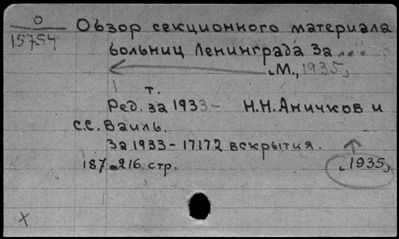 О
15754
Обзор секционного материала
больниц Ленинграда за
„М., 1935„
1 т.
Ред. за 1933- Н.Н.Аничков и
С.С. Вайль.
За 1933-17172 вскрытия.
187-216 стр. „1935„
x